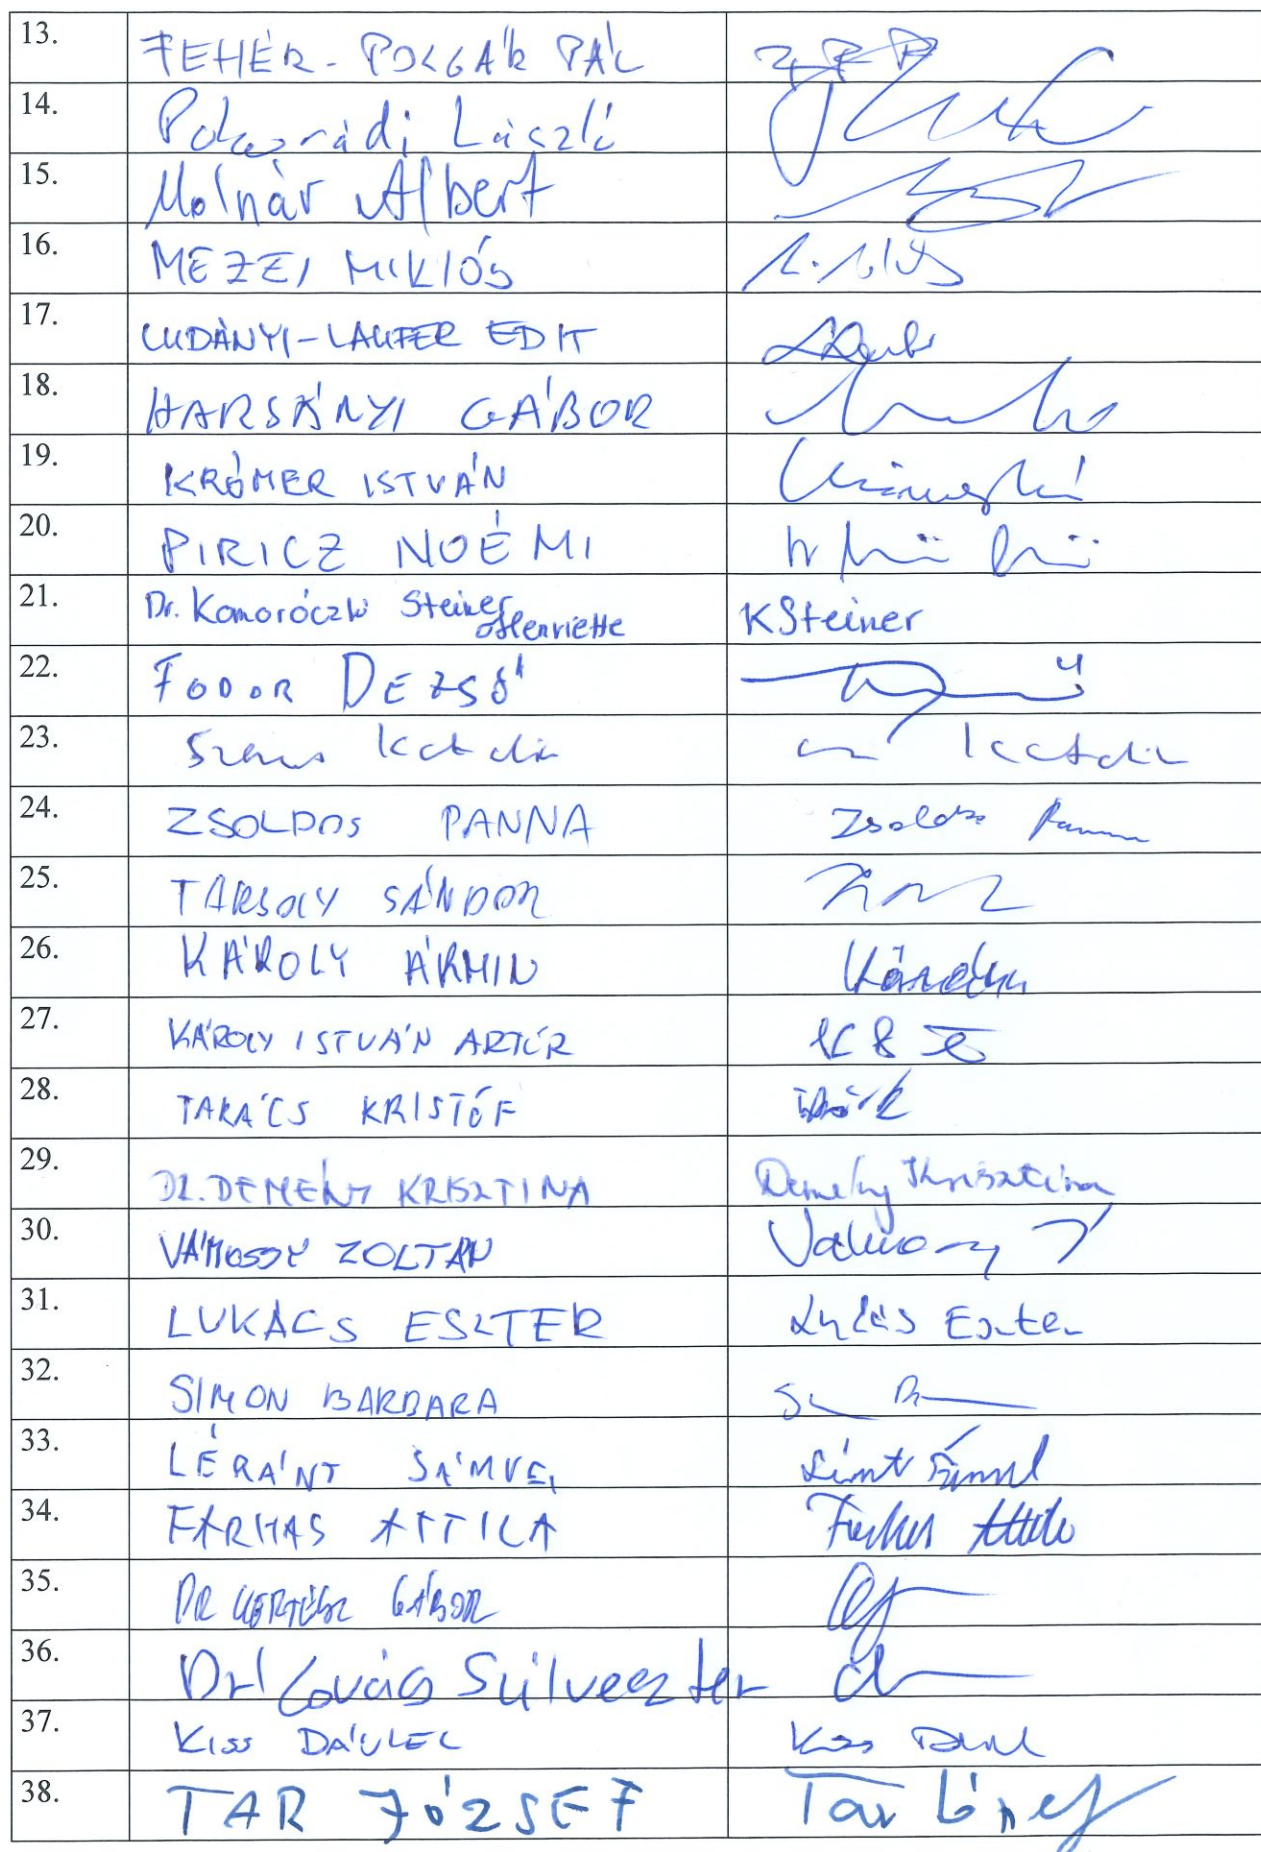 13. FEHÉR-POLGÁR PÁL
14. Pokorádi László
15. Molnár Albert
16. MEZEI MIKLÓS
17. LUDÁNYI-LAUFER EDIT
18. HARSÁNYI GÁBOR
19. KRÓMER ISTVÁN
20. PIRICZ NOÉMI
21. Dr. Komoróczki Steiner Henriette K Steiner
22. FODOR DEZSŐ
23. Katalin Katalin
24. ZSOLDOS PANNA Zsoldos Panna
25. TARSOLY SÁNDOR
26. KÁROLY ÁRMIN
27. KÁROLY ISTVÁN ARTÚR
28. TAKÁCS KRISTÓF
29. DR. DEMÉNY KRISZTINA Demény Krisztina
30. VÁMOSSY ZOLTÁN Vámossy Z
31. LUKÁCS ESZTER Lukács Eszter
32. SIMON BARBARA
33. LÉRÁNT SÁMUEL
34. FARKAS ATTILA Farkas Attila
35. DR KERTÉSZ GÁBOR
36. Dr Kovács Szilveszter
37. KISS DÁNIEL Kiss Dániel
38. TAR JÓZSEF Tar József